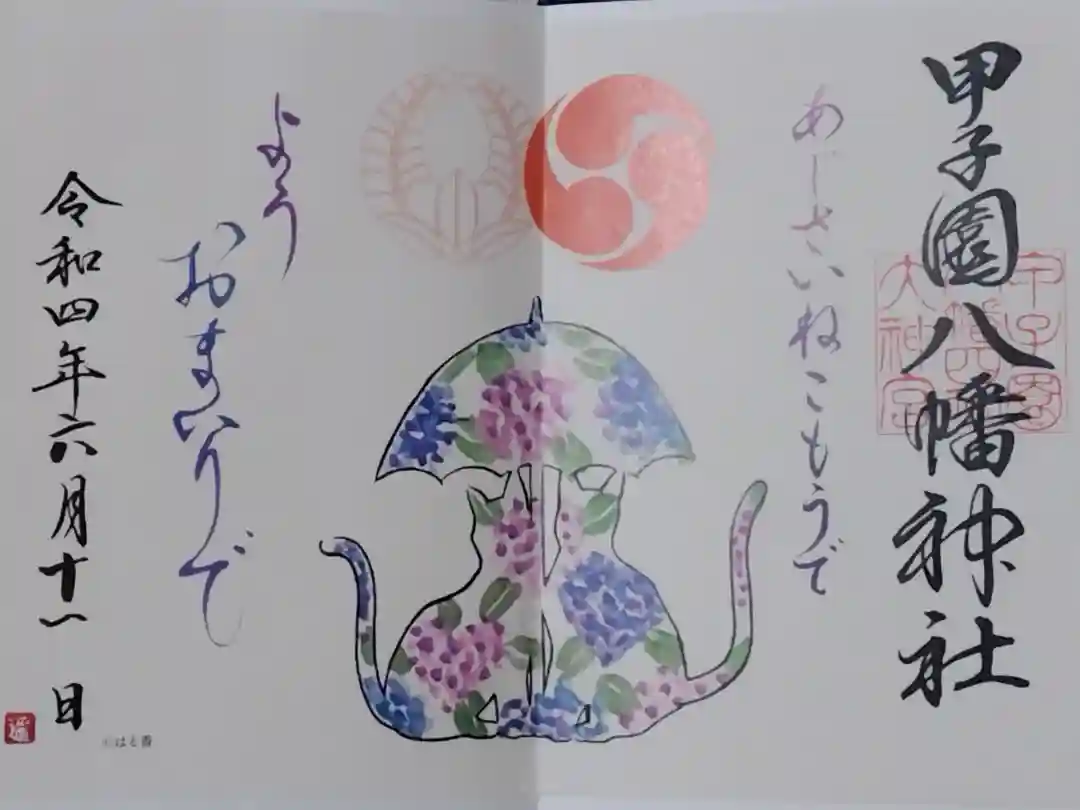 甲子園八幡神社
甲子園
八幡
大神宮
あじさいねこもうで
ようおまいりで
令和四年六月十一日